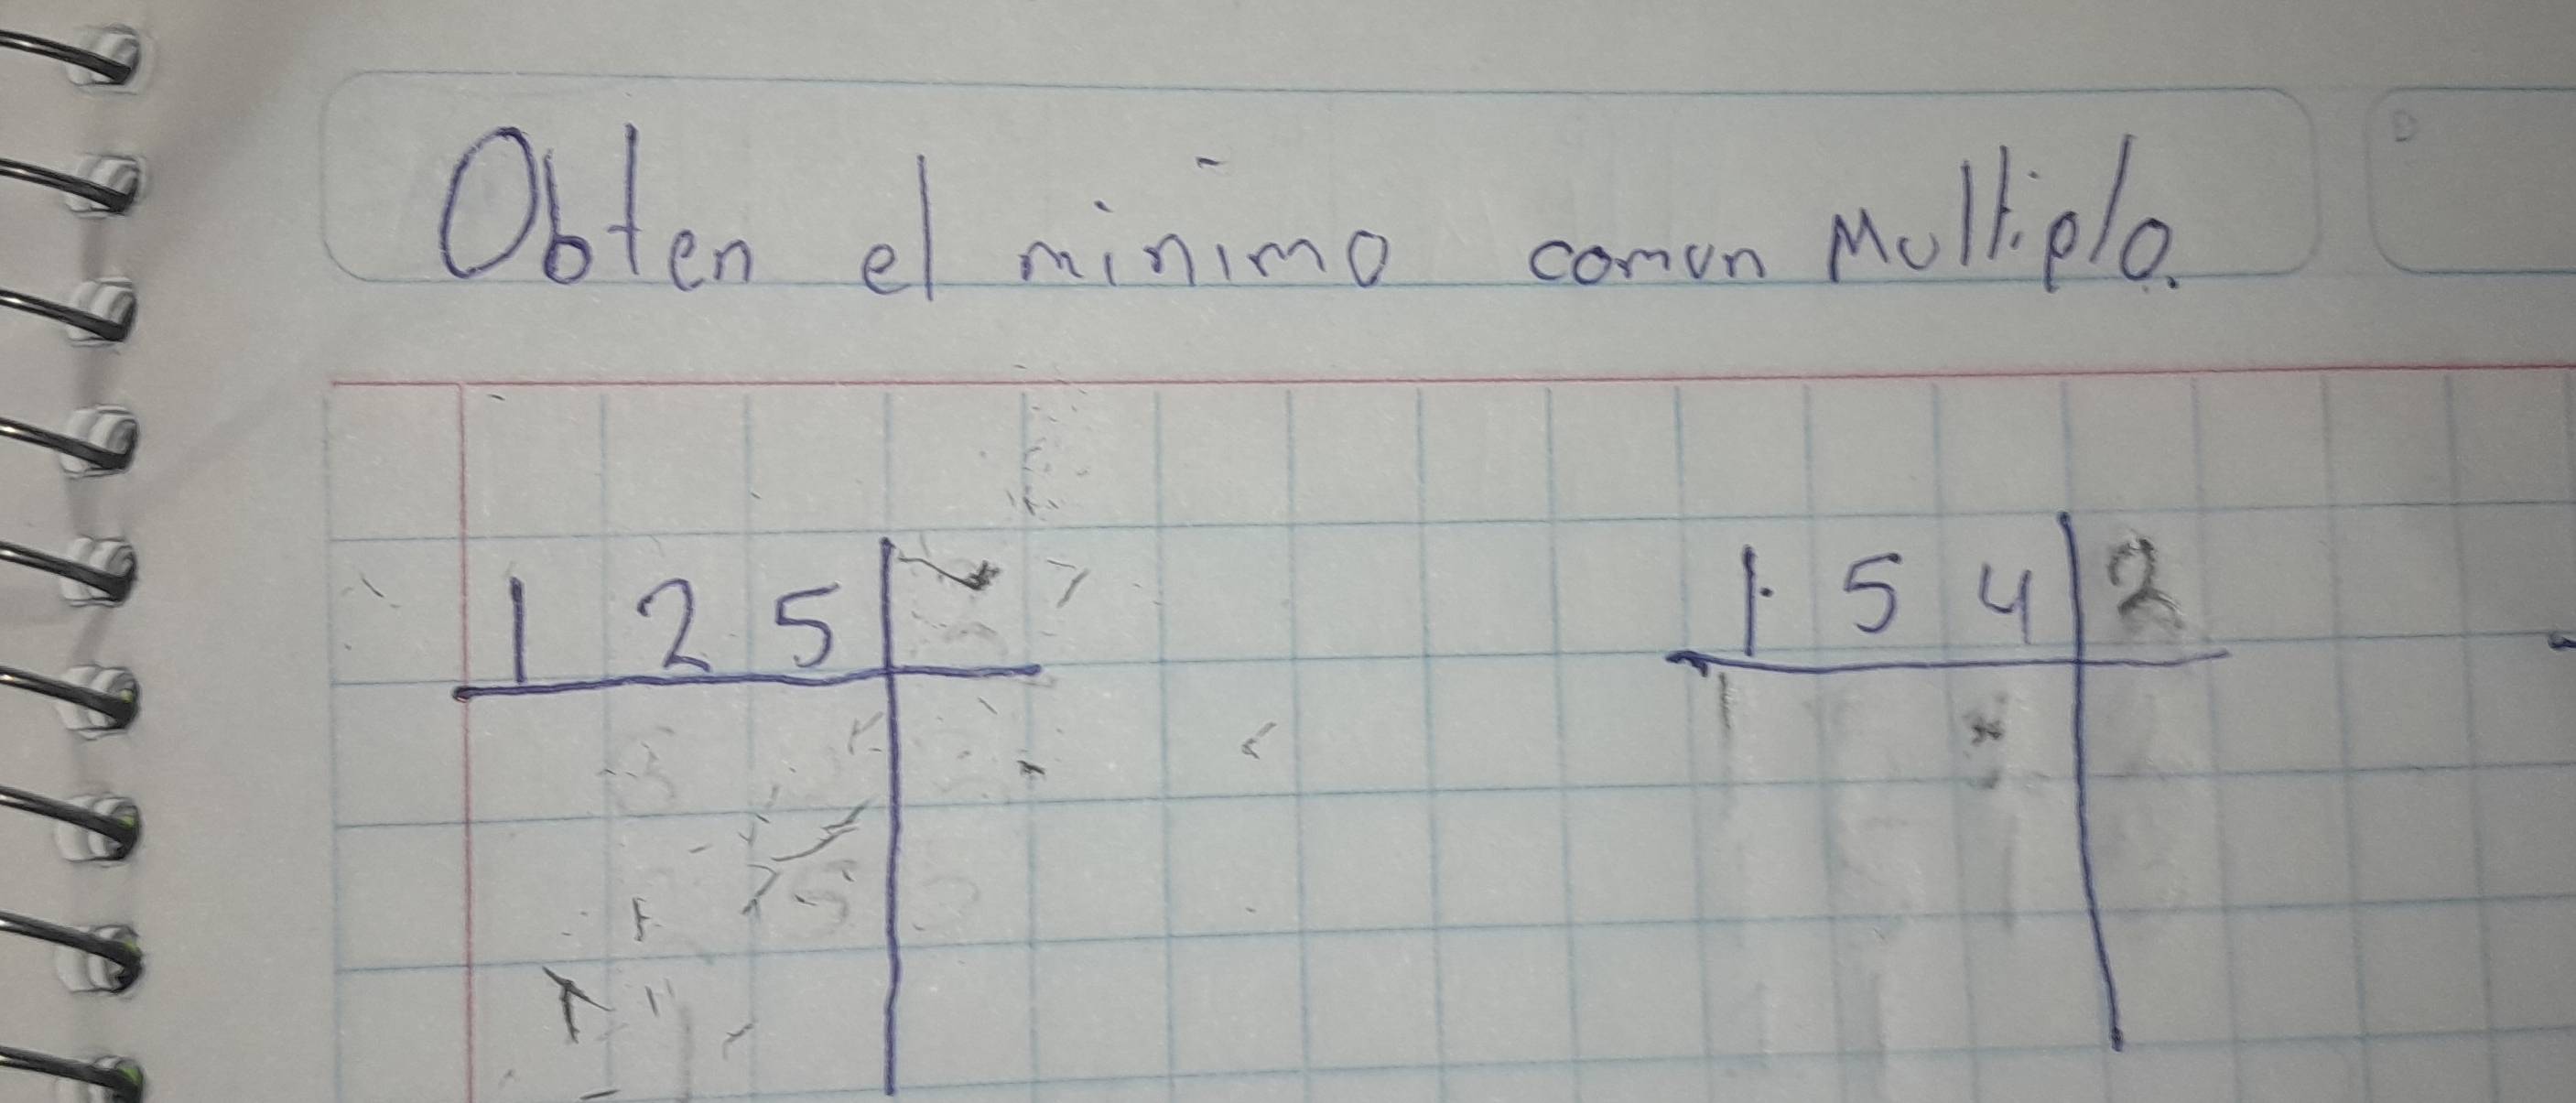 Obten el minimo comun Multiplo.
1 2 5
1 5 4 2